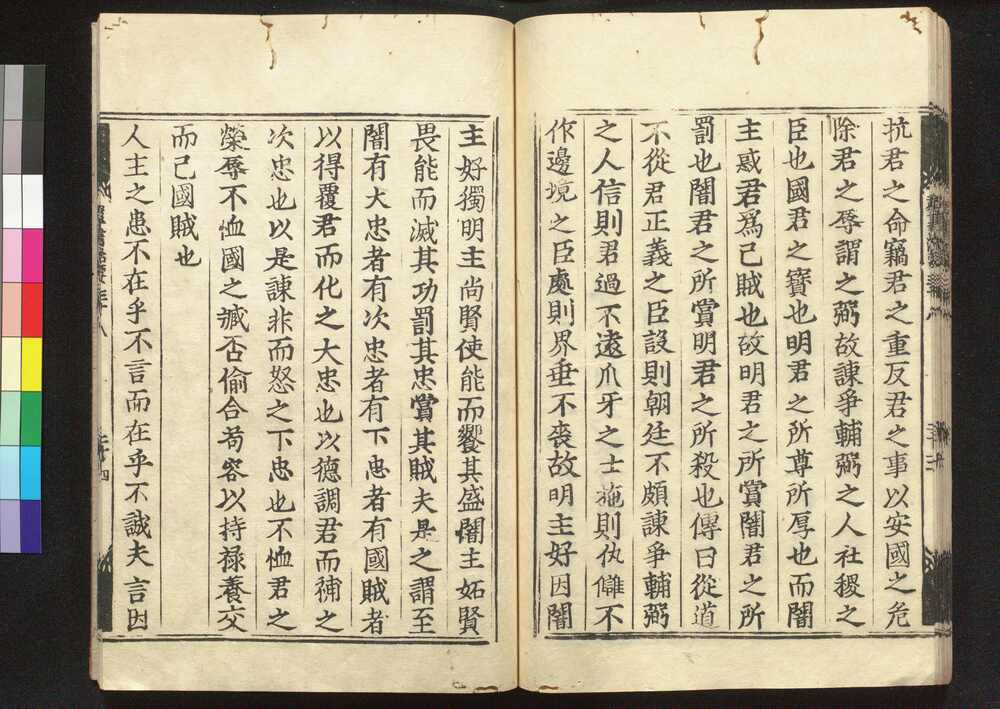 抗君之命竊君之重反君之事以安國之危
除君之辱謂之弼故諌爭輔弼之人社稷之
臣也國君之寶也明君之所尊所厚也而闇
主惑君爲己賊也故明君之所賞闇君之所
罰也闇君之所賞明君之所殺也傳曰從道
不從君正義之臣設則朝廷不頗諌爭輔弼
之人信則君過不遠爪牙之士施則仇讎不
作邊境之臣處則界垂不喪故明主好因闇
主好獨明主尚賢使能而饗其盛闇主妬賢
畏能而滅其功罰其忠賞其賊夫是之謂至
闇有大忠者有次忠者有下忠者有國賊者
以得覆君而化之大忠也以德調君而補之
次忠也以是諌非而怒之下忠也不恤君之
榮辱不恤國之臧否偷合苟容以持禄養交
而己國賊也
人主之患不在乎不言而在乎不誠夫言因